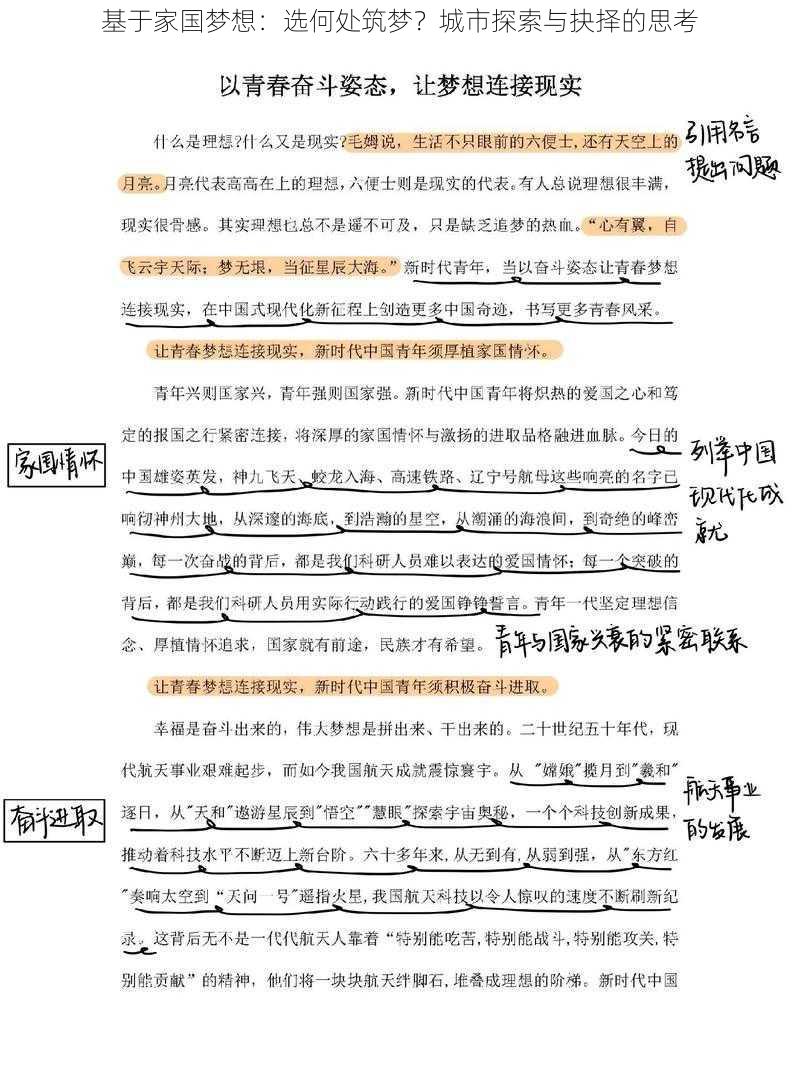 基于家国梦想：选何处筑梦？城市探索与抉择的思考
以青春奋斗姿态，让梦想连接现实
什么是理想?什么又是现实?毛姆说，生活不只眼前的六便士,还有天空上的
月亮。月亮代表高高在上的理想,六便士则是现实的代表。有人总说理想很丰满，
现实很骨感。其实理想也总不是遥不可及，只是缺乏追梦的热血。“心有翼，自
飞云宇天际；梦无垠，当征星辰大海。”新时代青年，当以奋斗姿态让青春梦想
连接现实，在中国式现代化新征程上创造更多中国奇迹，书写更多青春风采。
引用名言
提出问题
让青春梦想连接现实，新时代中国青年须厚植家国情怀。
青年兴则国家兴，青年强则国家强。新时代中国青年将炽热的爱国之心和笃
定的报国之行紧密连接，将深厚的家国情怀与激扬的进取品格融进血脉。今日的
中国雄姿英发，神九飞天、蛟龙入海、高速铁路、辽宁号航母这些响亮的名字已
响彻神州大地，从深邃的海底，到浩瀚的星空，从潮涌的海浪间，到奇绝的峰峦
巅，每一次奋战的背后，都是我们科研人员难以表达的爱国情怀；每一个突破的
背后，都是我们科研人员用实际行动践行的爱国铮铮誓言。青年一代坚定理想信
念、厚植情怀追求，国家就有前途，民族才有希望。
家国情怀
列举中国
现代化成
就
青年与国家兴衰的紧密联系
让青春梦想连接现实，新时代中国青年须积极奋斗进取。
幸福是奋斗出来的，伟大梦想是拼出来、干出来的。二十世纪五十年代，现
代航天事业艰难起步，而如今我国航天成就震惊寰宇。从 "嫦娥"揽月到"羲和"
逐日，从"天和"遨游星辰到"悟空""慧眼"探索宇宙奥秘，一个个科技创新成果，
推动着科技水平不断迈上新台阶。六十多年来,从无到有,从弱到强，从"东方红
"奏响太空到“天问一号"遥指火星,我国航天科技以令人惊叹的速度不断刷新纪
录。这背后无不是一代代航天人靠着“特别能吃苦,特别能战斗,特别能攻关,特
别能贡献”的精神，他们将一块块航天绊脚石,堆叠成理想的阶梯。新时代中国
奋斗进取
航天事业
的发展